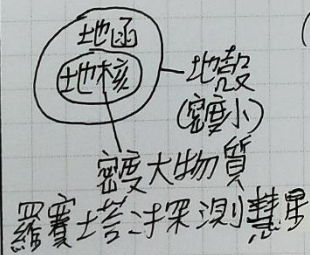 地函
地核
地殼
(密度小)
密度大物質
羅賽塔:探測彗星